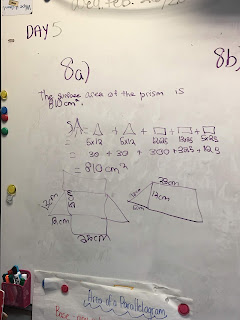 DAY 5
8a)
8b)
The surface area of the prism is
810cm².
SA = △ + △ + ▭ + ▭ + ▭
5x12 5x12 12x25 13x25 5x25
= 30 + 30 + 300 + 325 + 125
= 810cm²
12cm
25cm
25cm
12cm
Area of a Parallelogram